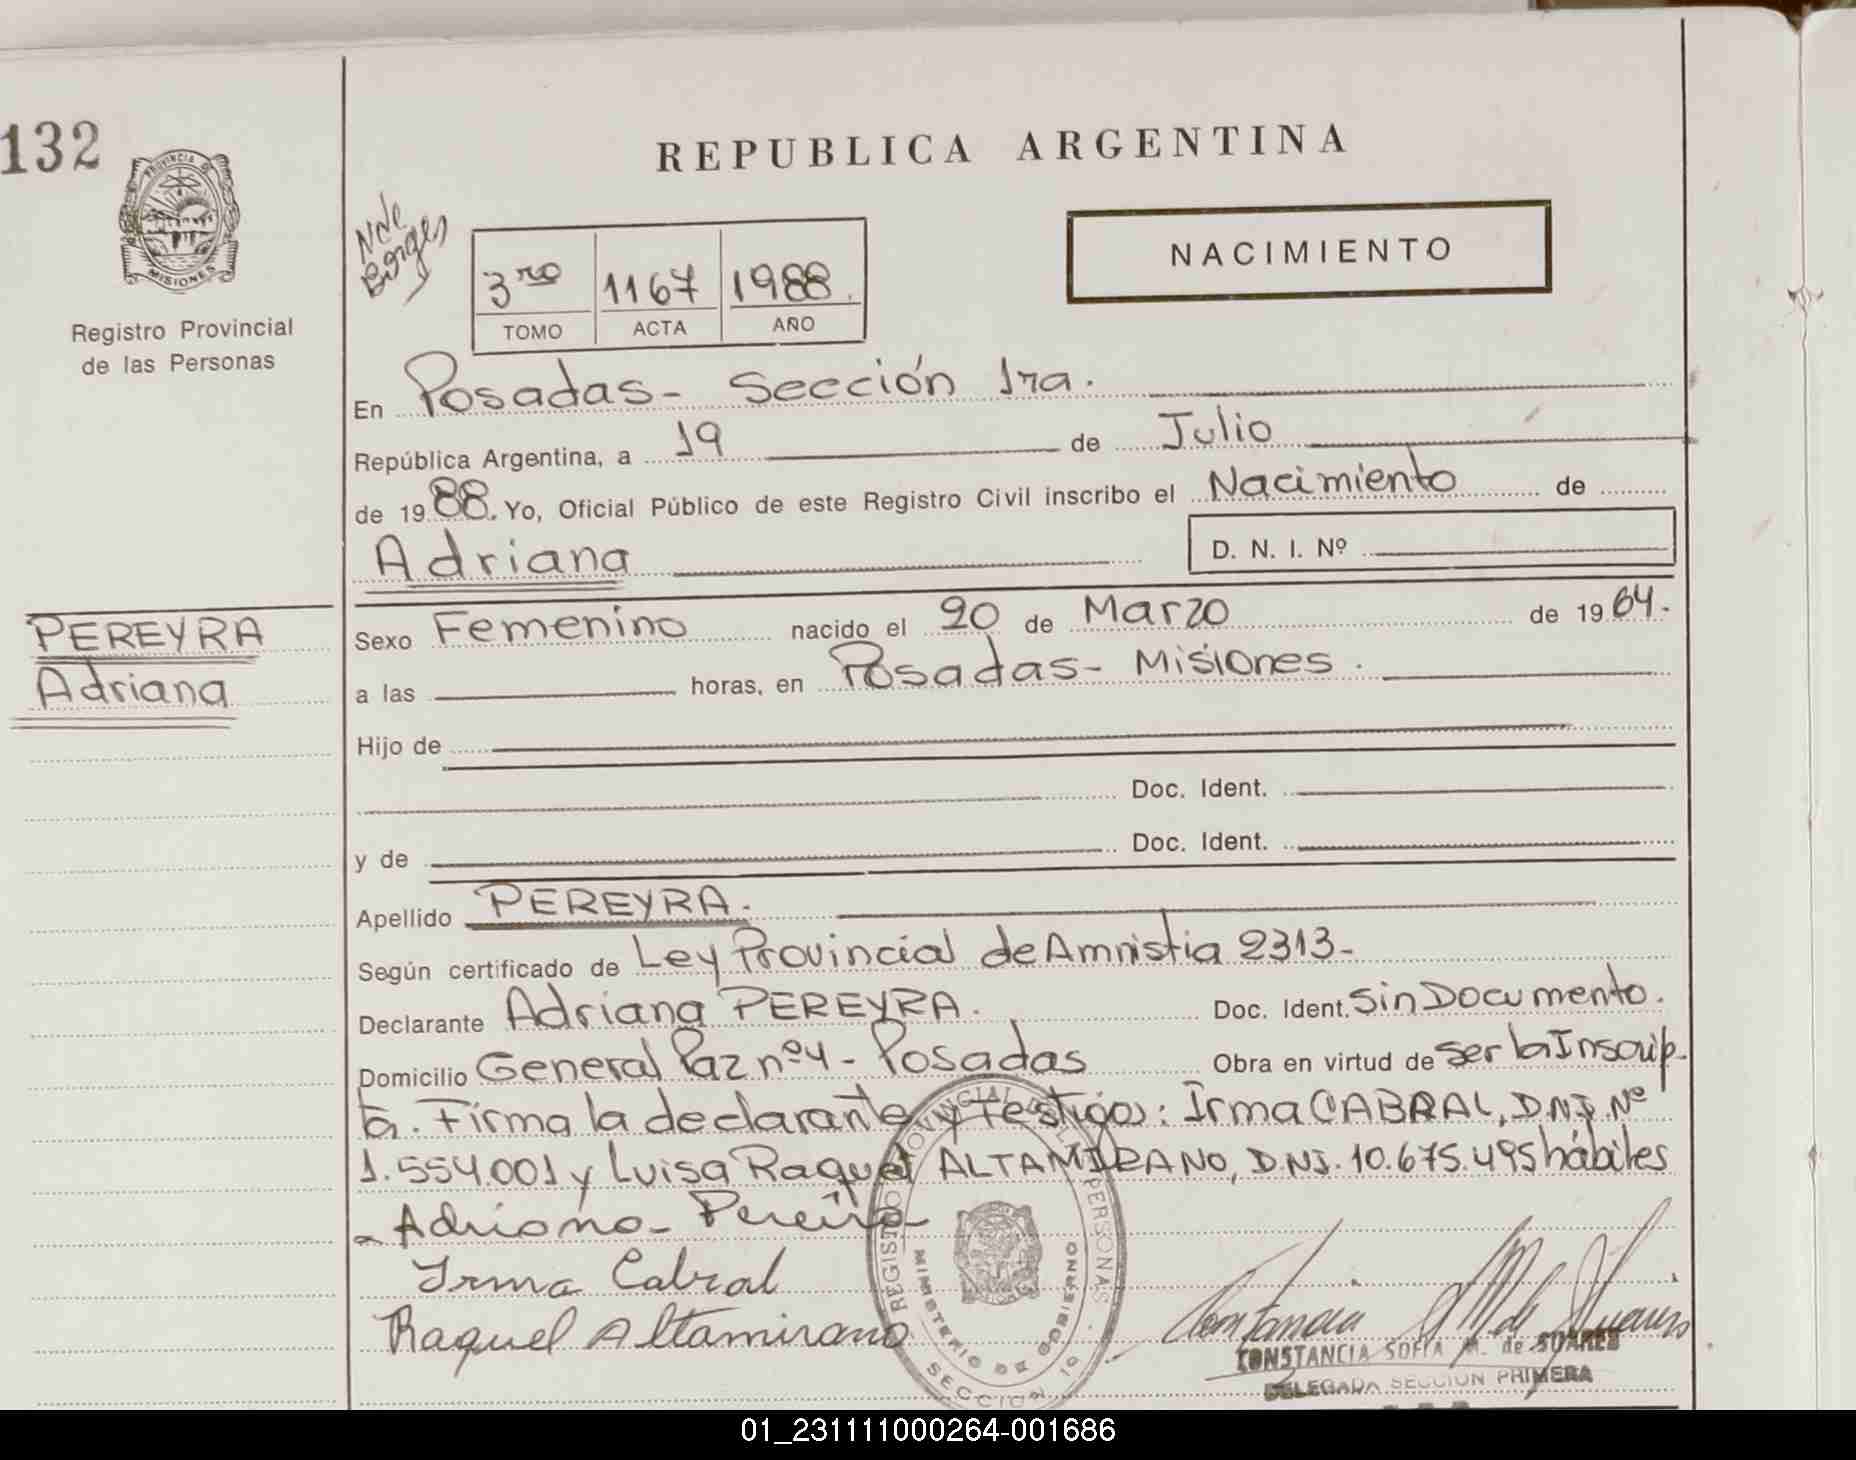 132
PROVINCIA DE
MISIONES
Registro Provincial
de las Personas
REPUBLICA ARGENTINA
NACIMIENTO
Nde
Borges
3ro 1167 1988
TOMO ACTA AÑO
En Posadas- Sección 1ra.
República Argentina, a 19 de Julio
de 1988. Yo, Oficial Público de este Registro Civil inscribo el Nacimiento de
Adriana D. N. I. Nº
PEREYRA
Adriana
Sexo Femenino nacido el 20 de Marzo de 1964.
a las horas, en Posadas- Misiones.
Hijo de
Doc. Ident.
y de Doc. Ident.
Apellido PEREYRA.
Según certificado de Ley Provincial de Amnistia 2313-
Declarante Adriana PEREYRA. Doc. Ident. Sin Documento.
Domicilio General Paz nº4 - Posadas Obra en virtud de ser la Inscrip-
ta. Firma la declarante y testigos: Irma CABRAL, D.N.I. Nº
1.554.001 y Luisa Raquel ALTAMIRANO, D.N.I. 10.675.495 hábiles
Adriana- Pereira
Irma Cabral
Raquel Altamirano
REGISTRO PROVINCIAL DE LAS PERSONAS
MINISTERIO DE GOBIERNO
SECCION 1º
Constancia M de Suares
CONSTANCIA SOFIA M. de SUARES
DELEGADA SECCION PRIMERA
01_231111000264-001686